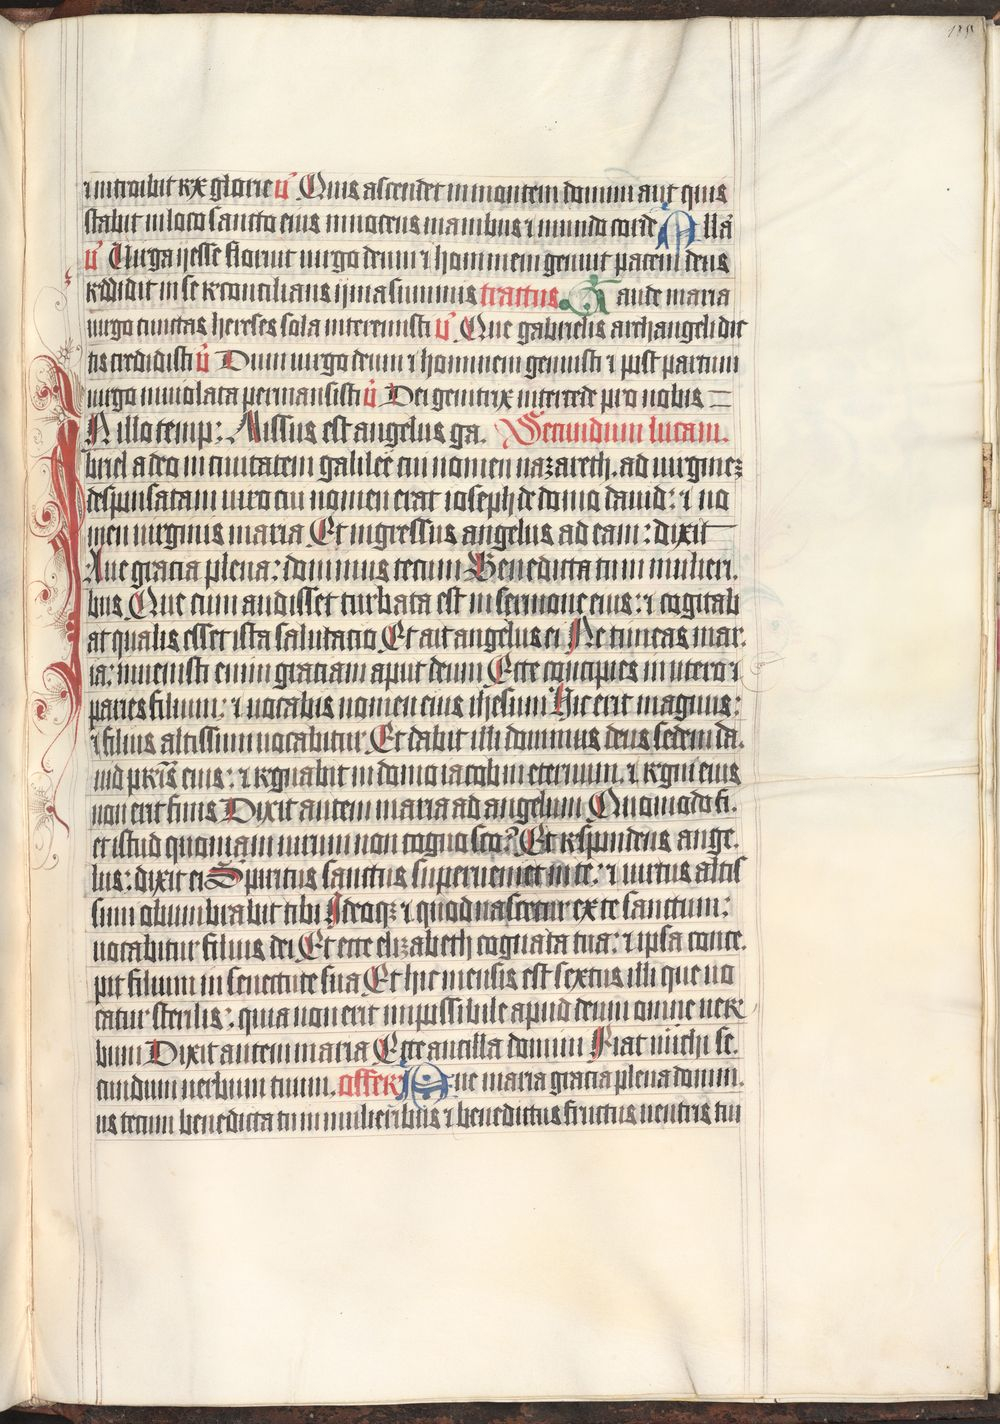 introibit rex glorie v̉ Quis ascendet in montem domini aut quis
stabit in loco sancto eius innocens manibus ⁊ mundo corde Alla
v̉ Virga yesse floruit virgo deum ⁊ hominem genuit pacem deus
reddidit in se reconcilians yma summis tractus. Gaude maria
virgo cunctas hereses sola interemisti v̉ Que gabrielis archangeli dic
tis credidisti v̉ Dum virgo deum ⁊ hominem genuisti ⁊ post partum
virgo inviolata permansisti v̉ Dei genitrix intercede pro nobis
In illo temp: Missus est angelus ga. Secundum lucam.
briel a deo in civitatem galilee cui nomen nazareth. ad virginez
desponsatam viro cui nomen erat ioseph de domo david: ⁊ no
men virginis maria Et ingressus angelus ad eam: dixit
Ave gracia plena: dominus tecum Benedicta tu in mulieri.
bus Que cum audisset turbata est in sermone eius: ⁊ cogitab
at qualis esset ista salutacio Et ait angelus ei Ne timeas mar.
ia: invenisti enim graciam aput deum Ecce concipies in utero ⁊
paries filium: ⁊ vocabis nomen eius ihesum Hic erit magnus:
⁊ filius altissimi vocabitur Et dabit illi dominus deus sedem da.
vid pr̄is eius: ⁊ regnabit in domo iacob in eternum. ⁊ regni eius
non erit finis Dixit autem maria ad angelum Quomodo fi.
et istud quoniam virum non cognosco? Et respondens ange.
lus: dixit ei Spiritus sanctus superveniet in te: ⁊ virtus altis
simi obumbrabit tibi Ideoqꝫ ⁊ quod nascetur ex te sanctum:
vocabitur filius dei Et ecce elizabeth cognata tua: ⁊ ipsa conce.
pit filium in senectute sua Et hic mensis est sextus illi que vo
catur sterilis: quia non erit impossibile apud deum omne ver
bum Dixit autem maria Ecce ancilla domini Fiat michi se.
cundum verbum tuum. offer Ave maria gracia plena domin.
us tecum benedicta tu in mulieribus ⁊ benedictus fructus ventris tui